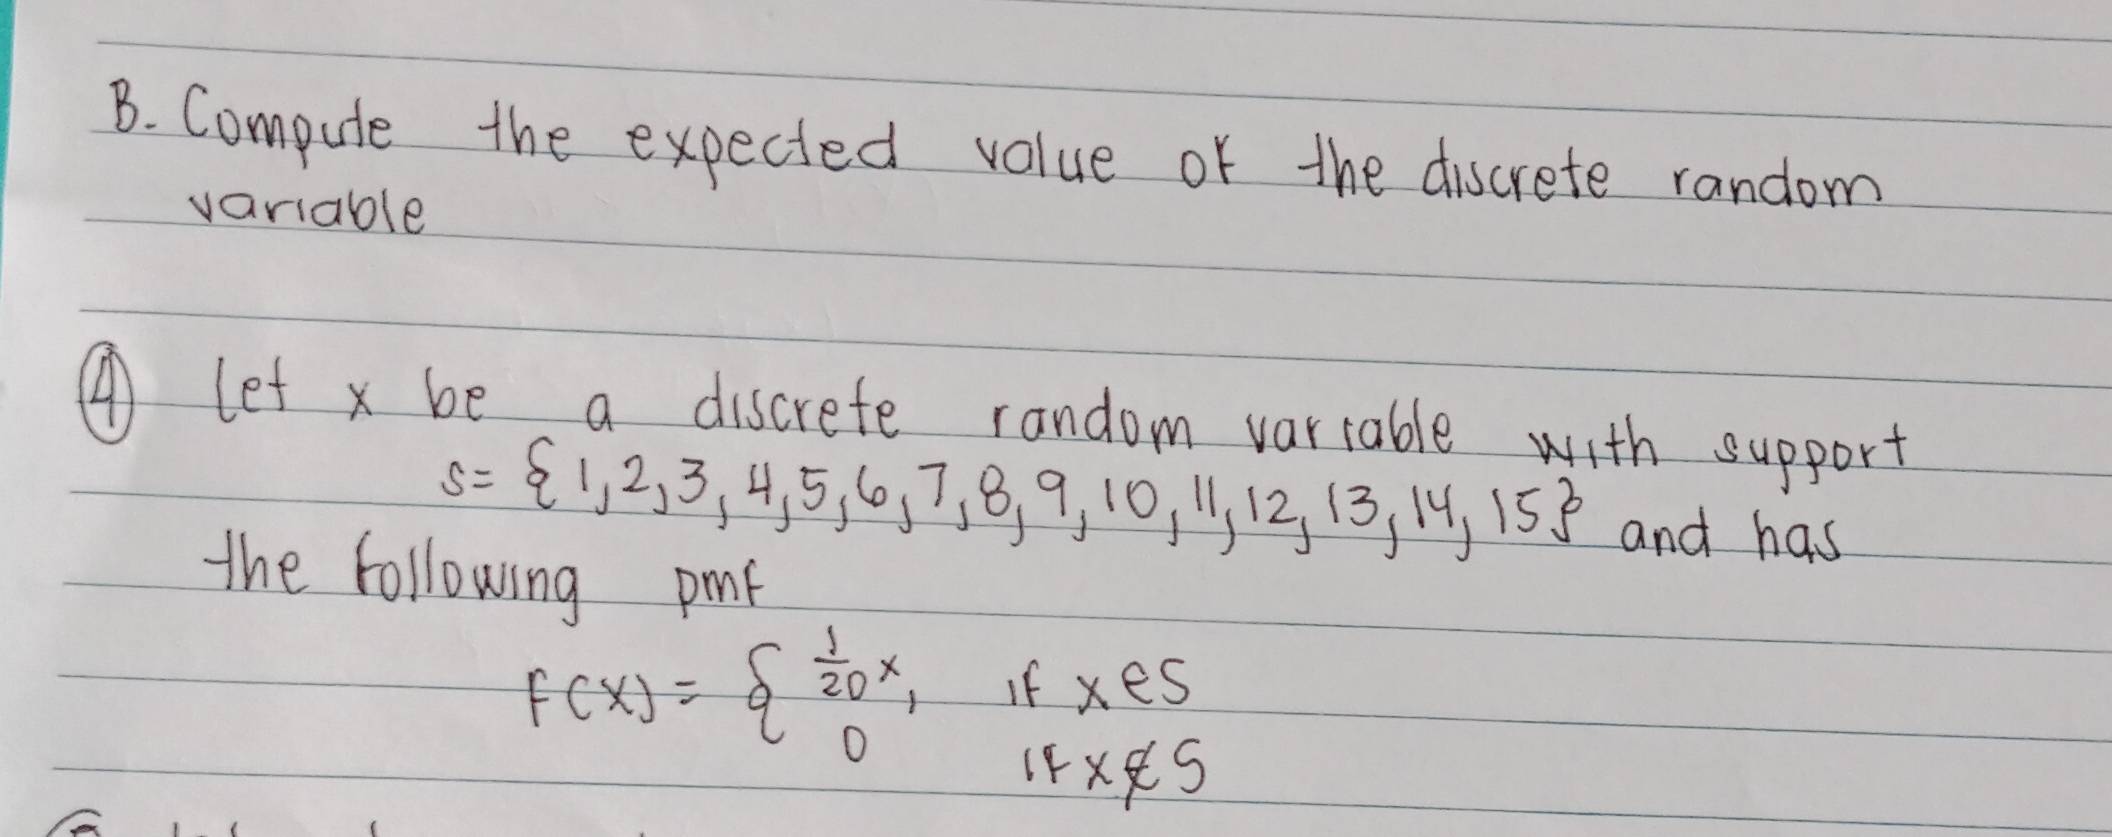 B. Compute the expected value of the discrete random
variable
④ Let x be a discrete random variable with support
s= {1,2,3,4,5,6,7,8,9,10,11,12,13,14,15} and has
the following pmf
f(x) = { 1/20 x, if x∈S
0 if x∉S